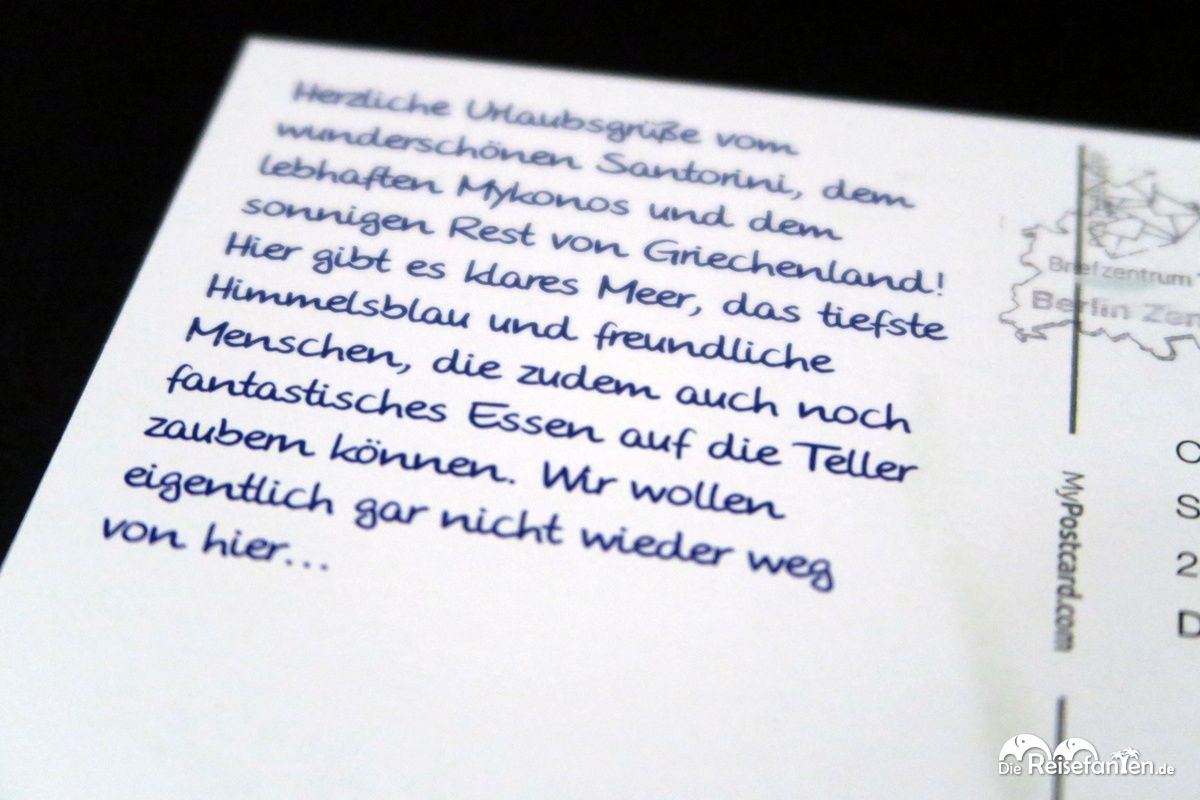 Herzliche Urlaubsgrüße vom
wunderschönen Santorini, dem
lebhaften Mykonos und dem
sonnigen Rest von Griechenland!
Hier gibt es klares Meer, das tiefste
Himmelsblau und freundliche
Menschen, die zudem auch noch
fantastisches Essen auf die Teller
zaubern können. Wir wollen
eigentlich gar nicht wieder weg
von hier...
Briefzentrum
Berlin
MyPostcard.com
S
2
D
Die Reisefanten.de